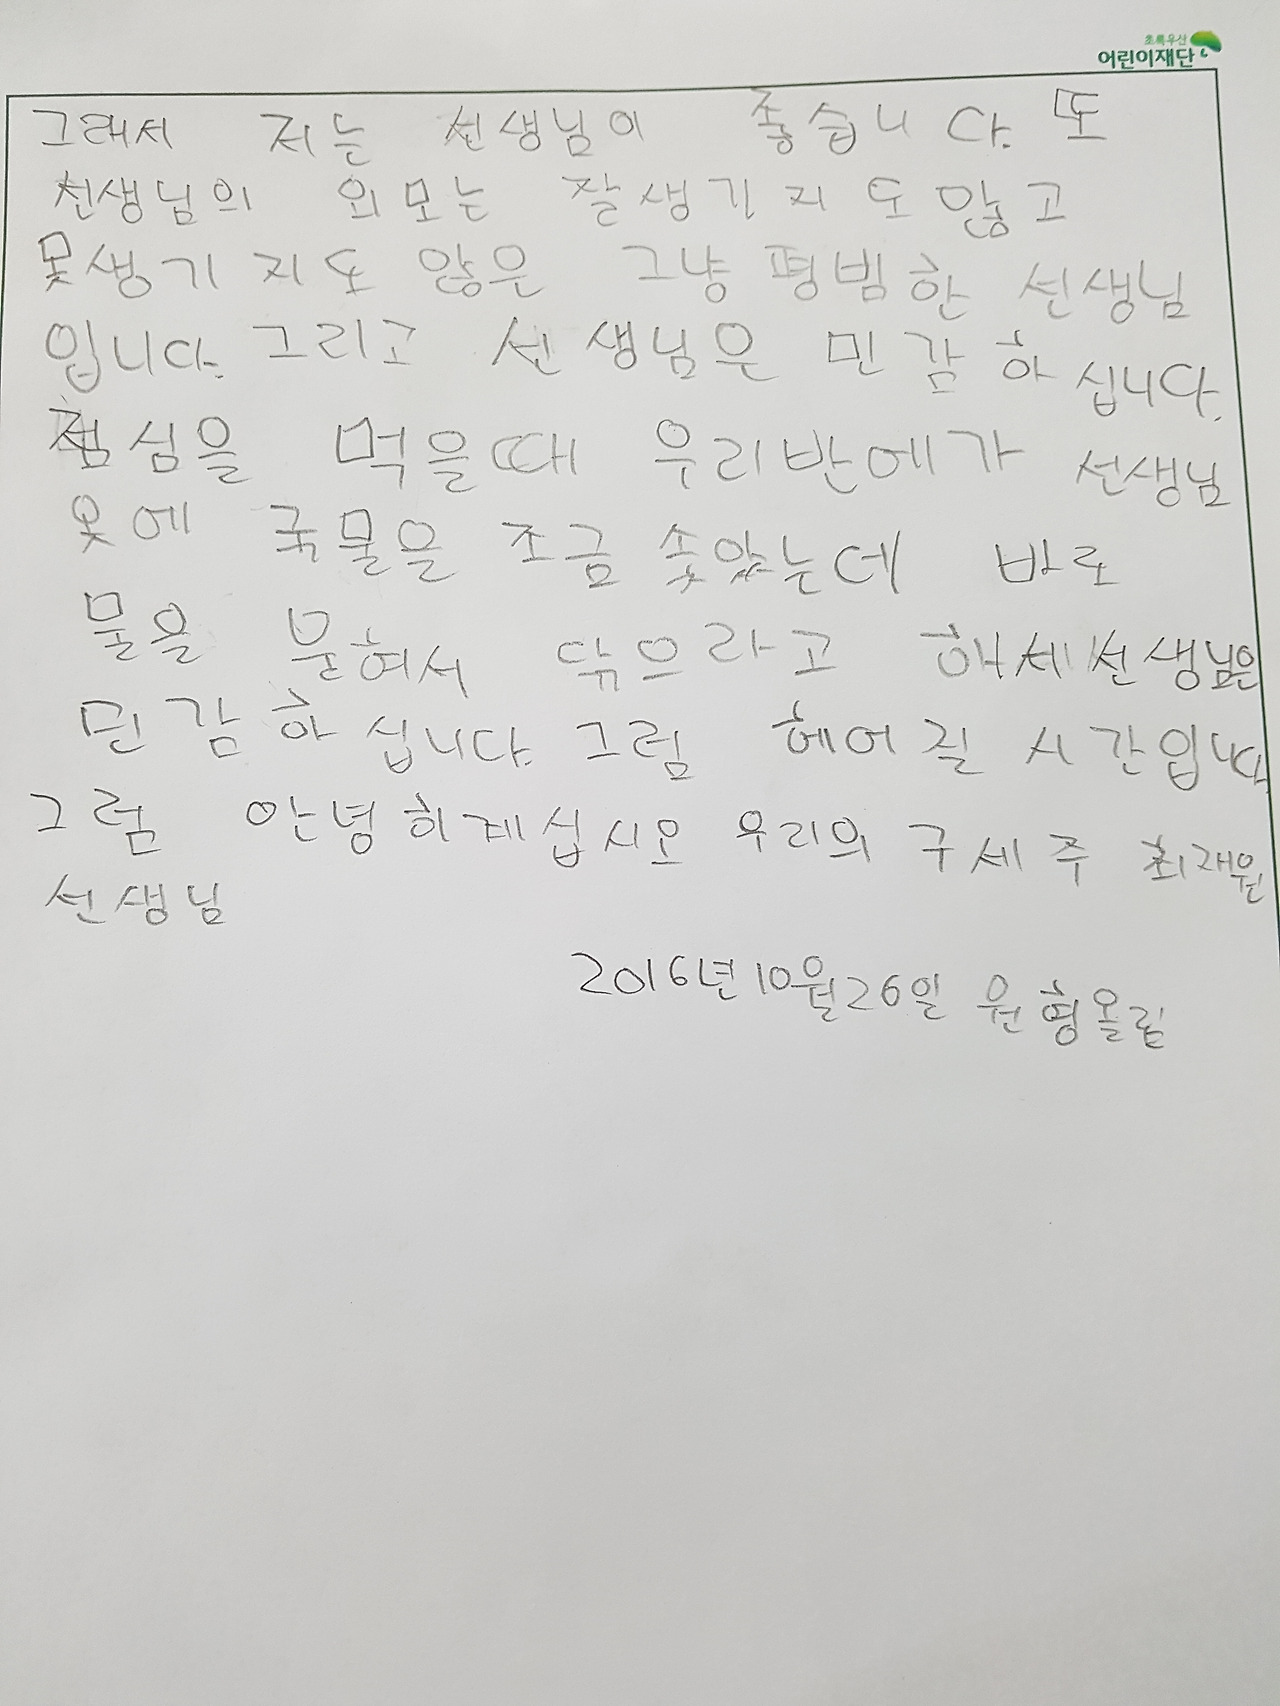 초록우산
어린이재단
그래서 저는 선생님이 좋습니다. 또
선생님의 외모는 잘생기지도않고
못생기지도 않은 그냥평범한 선생님
입니다. 그리고 선생님은 민감하십니다.
점심을 먹을때 우리반에가 선생님
옷에 국물을 조금 솟았는데 바로
물을 묻혀서 닦으라고 해세선생님은
민감하십니다. 그럼 헤어질 시간입니다
그럼 안녕히계십시오 우리의 구세주 최재원
선생님
2016년10월26일 원형올림